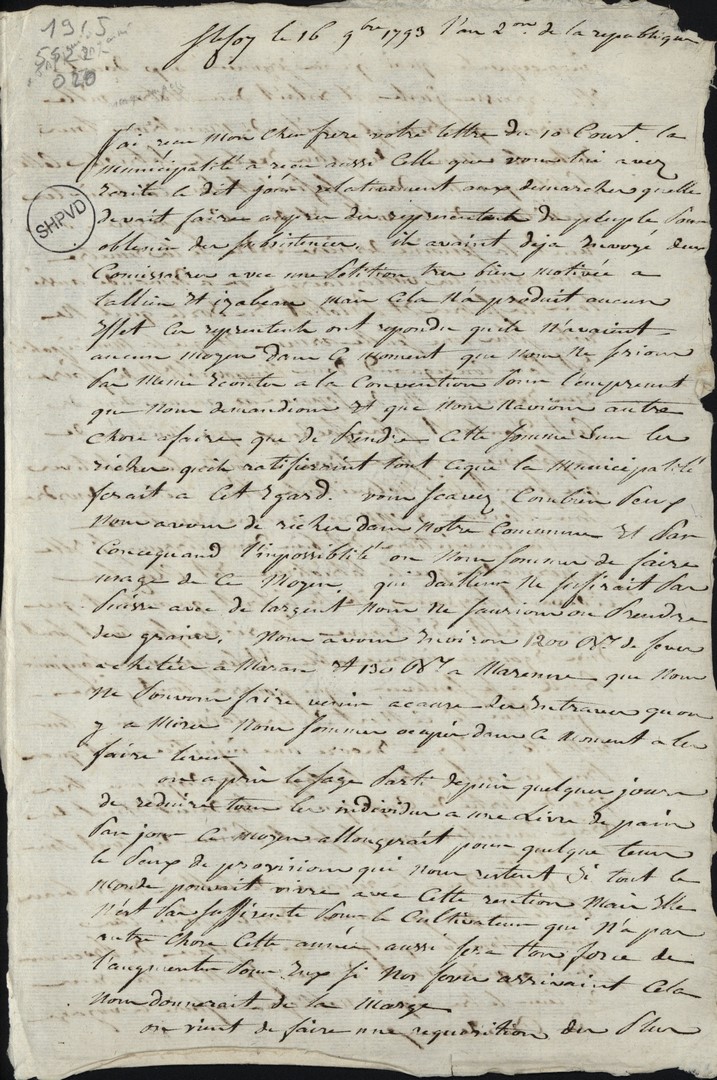 1915
5522
020
Ste foy le 16 9bre 1793 l'an 2me de la republique
J'ai recu mon cher frere votre lettre du 10 Court. la
municipalité a recu aussi celle que vous lui avez
Ecrite le dit jour relativement aux demarches quelle
devait faire aupres des representents du peuple pour
obtenir des subsistences, ils avaint deja Envoyé deux
Comissaires avec une Petition tres bien motivée a
tallien Et izabeau mais Cela n'a produit aucun
Effet Ces reprentents ont repondu quils n'avaient
aucun moyen dans ce moment que nous ne serions
Pas meme Ecoutés a la Convention Pour l'emprunt
que nous demandions Et que nous navions autre
chose a faire que de Prendre cette somme sur les
riches quils ratifieraint tout ceque la municipalité
ferait a cet Egard. vous scavez Combien Peux
nous avons de riches dans notre Commune Et Par
Concequand l'impossibilité ou nous sommes de faire
usage de ce moyen, qui dailleurs ne sufirait Pas
Puisse avec de largent nous ne saurions ou Prendre
des grains. nous avons Environ 1200 Bx de feves
achetées a Maran Et 130 Bx a Marenne que nous
ne Pouvons faire venir acause des Entraves quon
y a mises nous sommes ocupés dans ce moment a les
faire lever
on a pris le sage Parti depuis quelques jours
de reduire tous les individus a une Livre de pain
Par jour ce moyen allongerait pour quelque tems
le Peux de provisions qui nous restent Si tout le
monde pouvait vivre avec cette rention mais Elle
n'est Pas suffisente Pour le Cultivateur qui n'a pas
autre chose cette année aussi sera ton forcé de
l'augmenter Pour Eux si nos feves arrivaint cela
nous donnerait de la marge
on vient de faire une requisition des Plus
SHPVD